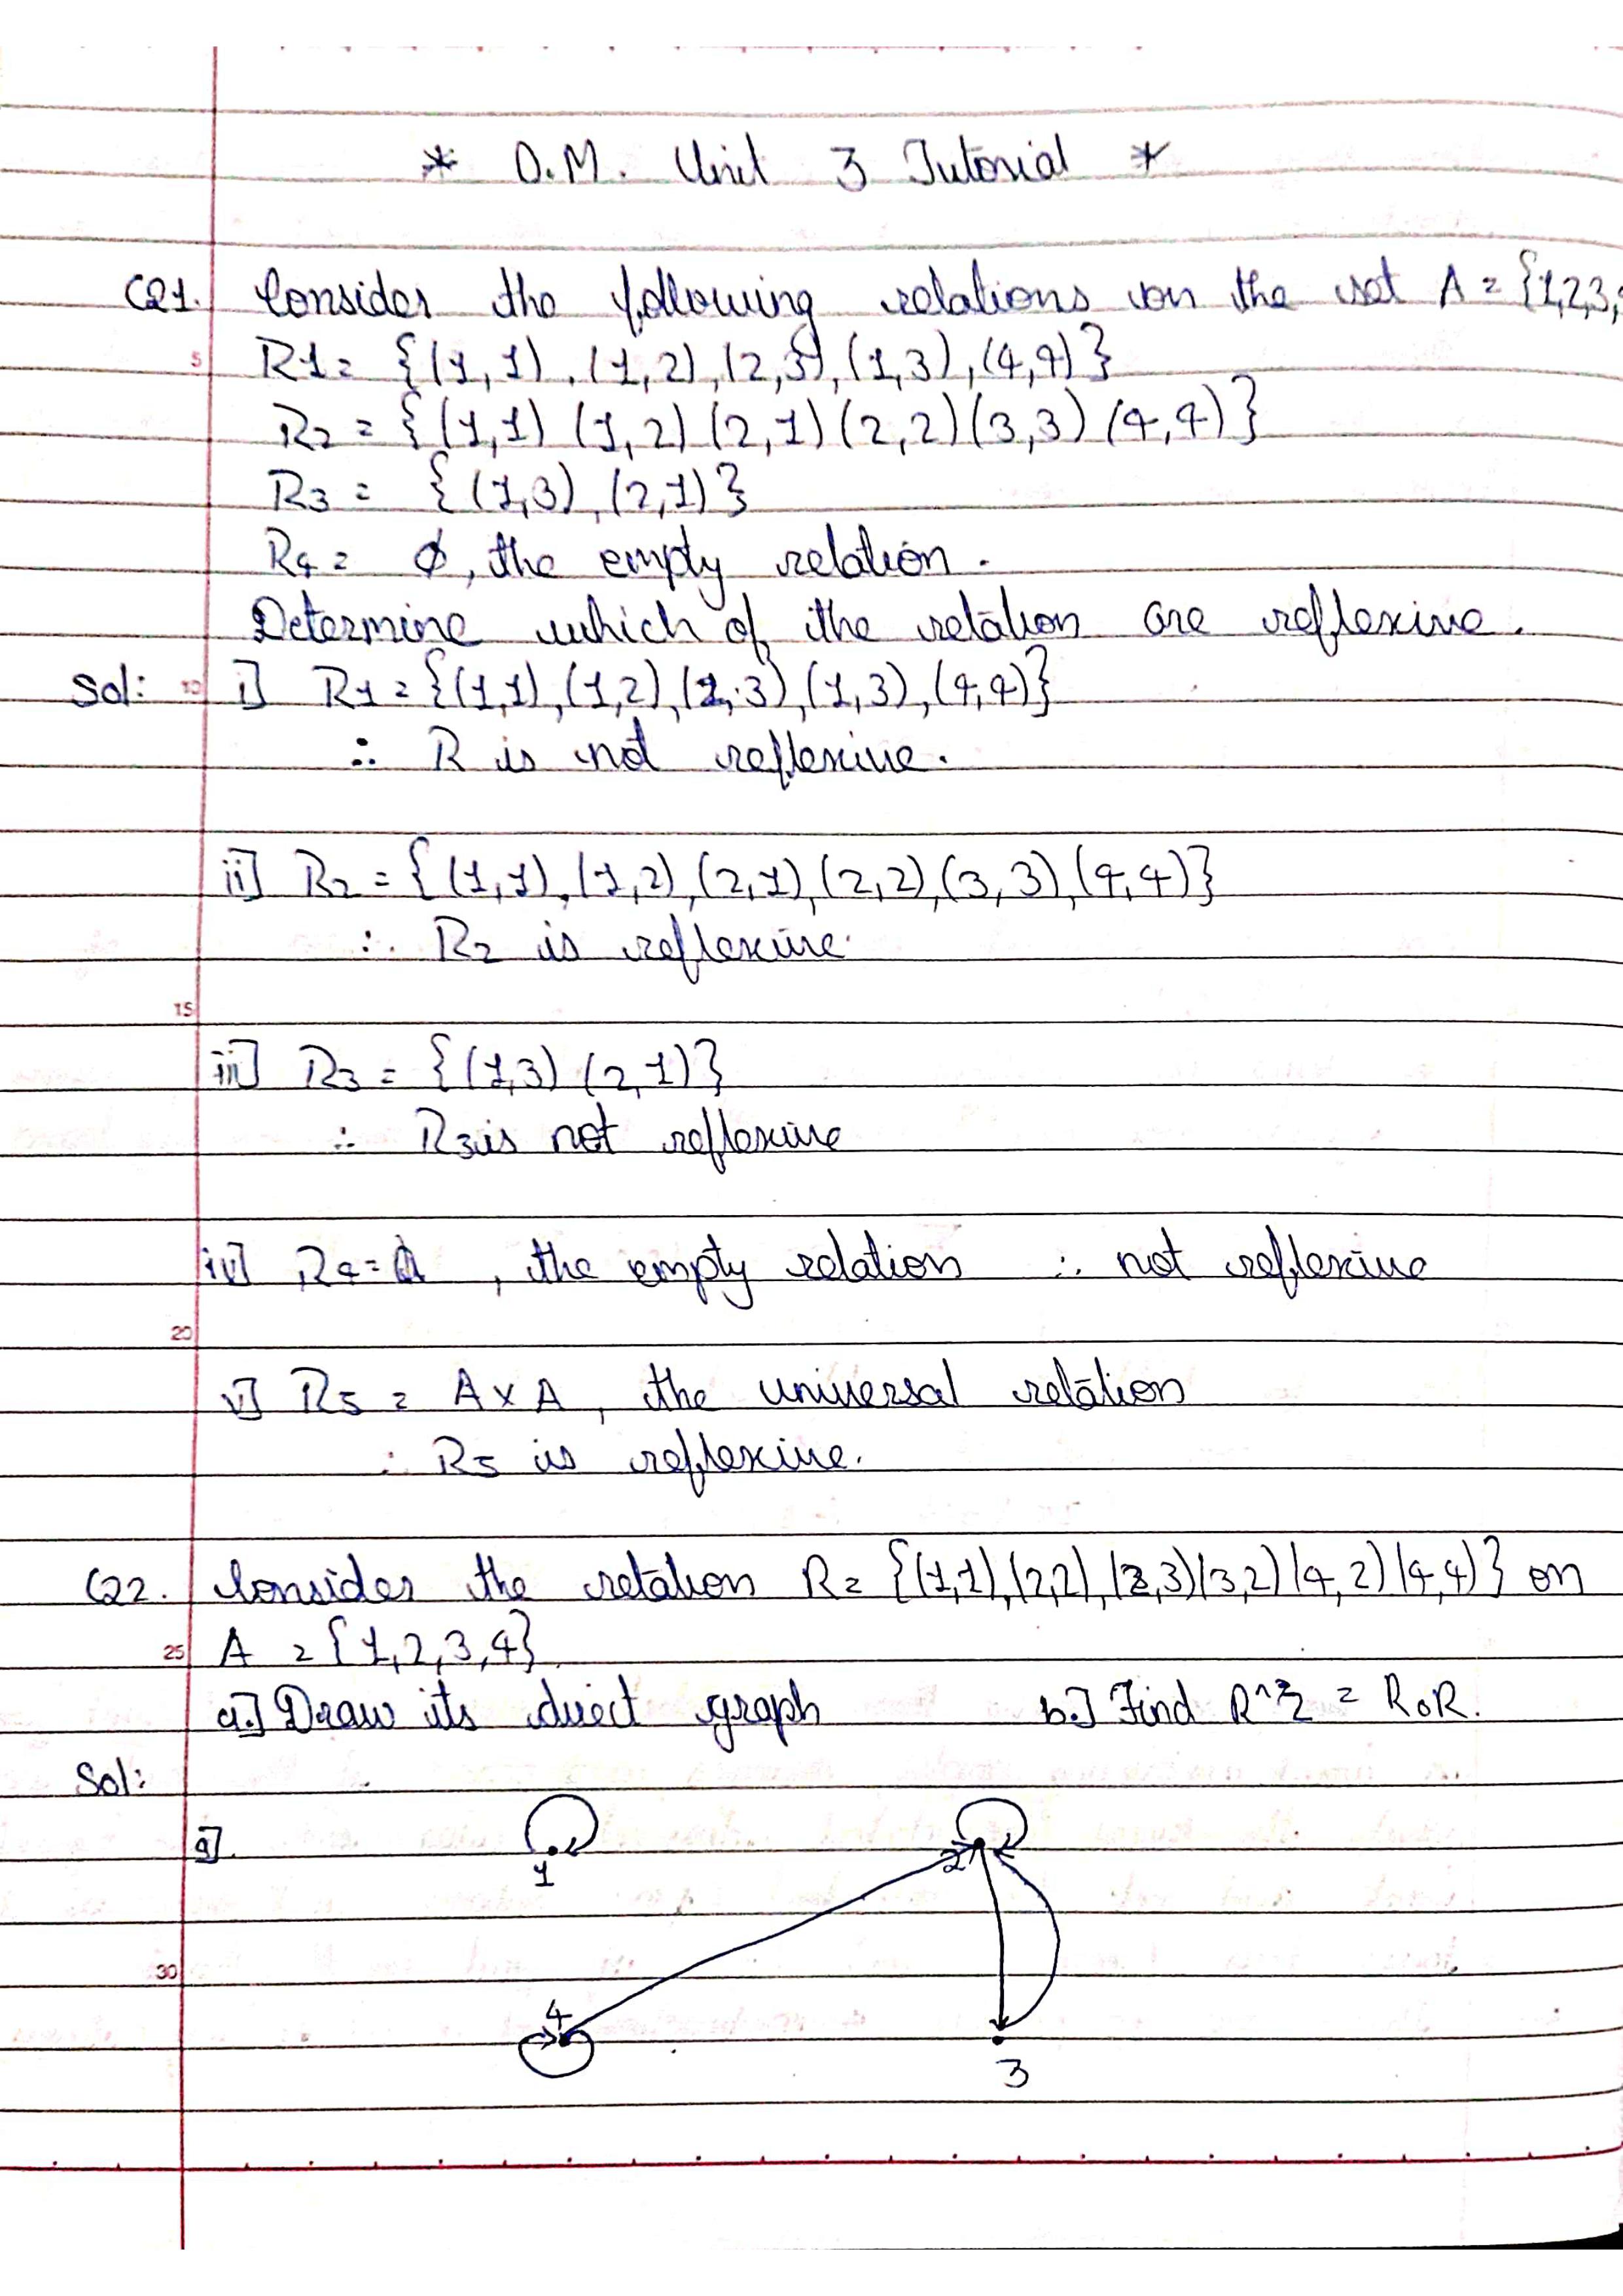 * D.M. Unit 3 Tutorial *
Q1. Consider the following relations on the set A = {1,2,3,
5 R1 = {(1,1), (1,2), (2,3), (1,3), (4,4)}
R2 = {(1,1) (1,2) (2,1) (2,2) (3,3) (4,4)}
R3 = {(1,3), (2,1)}
R4 = ϕ, the empty relation.
Determine which of the relation are reflexive.
Sol: 10 i] R1 = {(1,1), (1,2), (2,3), (1,3), (4,4)}
∴ R is not reflexive.
ii] R2 = {(1,1), (1,2), (2,1), (2,2), (3,3), (4,4)}
∴ R2 is reflexive.
15
iii] R3 = {(1,3) (2,1)}
∴ R3 is not reflexive
iv] R4 = ϕ, the empty relation ∴ not reflexive
20
v] R5 = A x A, the universal relation
∴ R5 is reflexive.
Q2. Consider the relation R = {(1,1), (2,2), (2,3) (3,2) (4,2) (4,4)} on
25 A = {1,2,3,4}
a.] Draw its direct graph b.] Find R^2 = RoR.
Sol:
a].
1 2
30
4
3